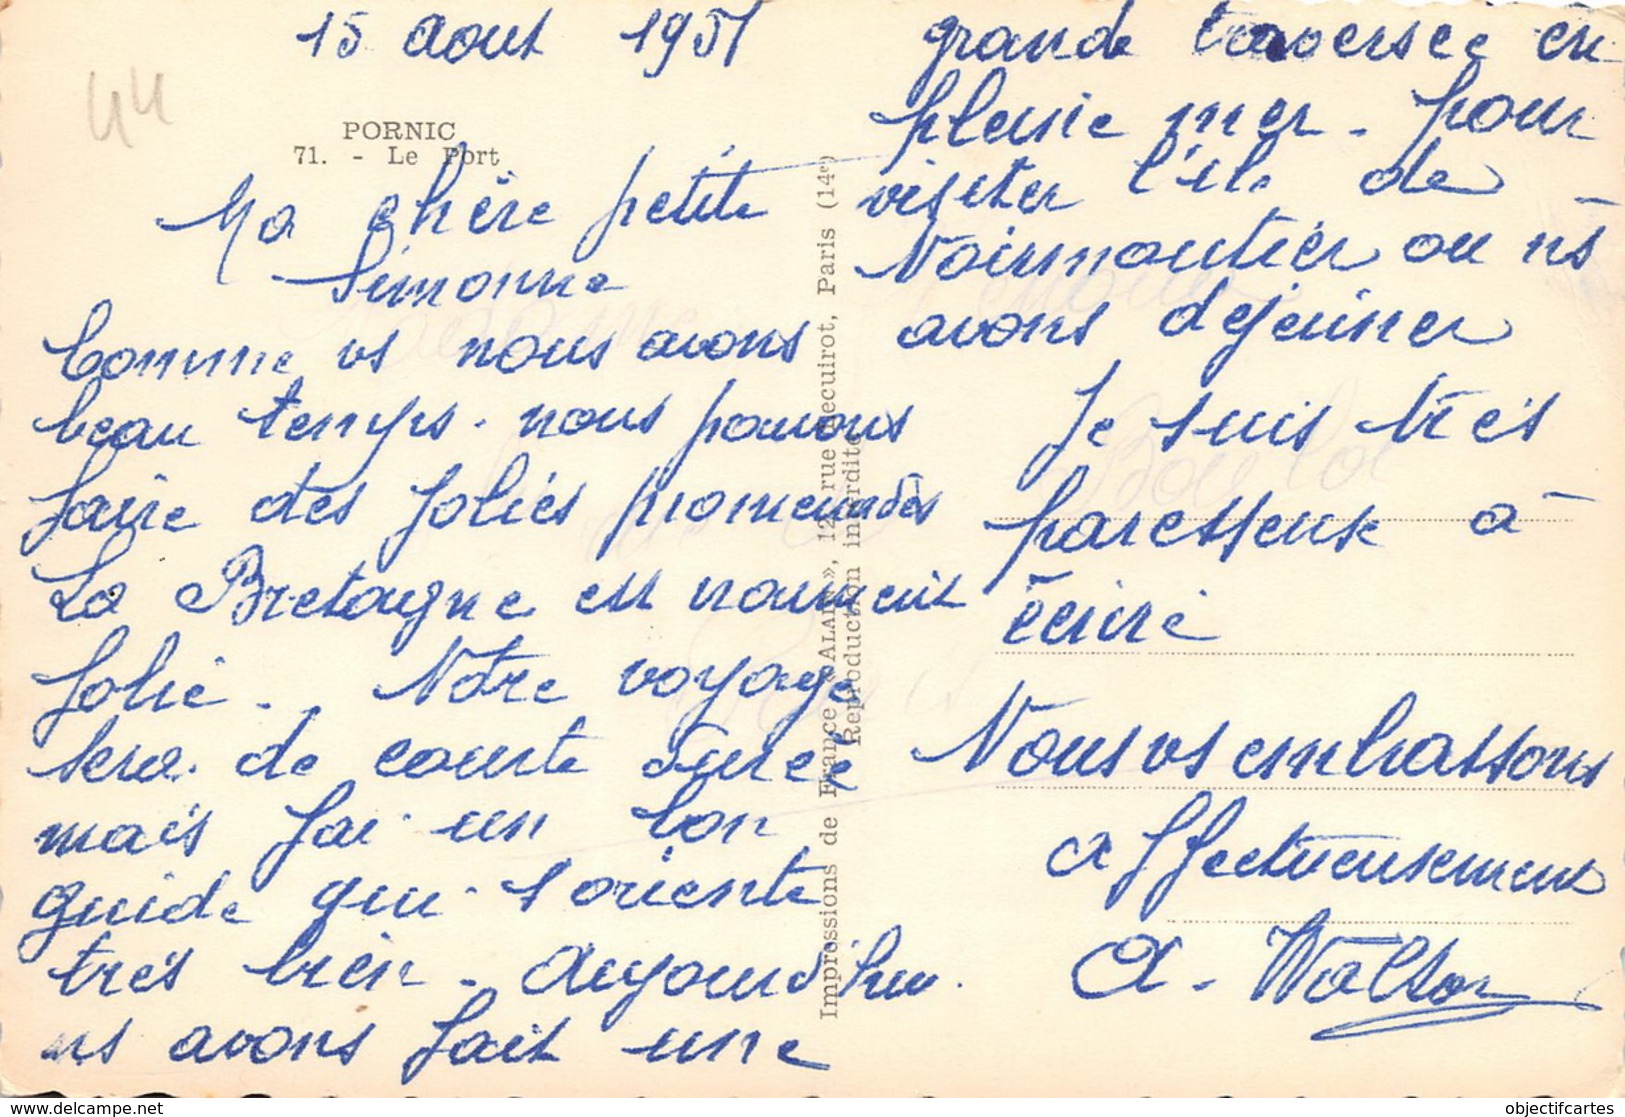 15 Aout 1951
44
PORNIC
71. - Le Port
Ma chère petite
Simonne
Comme vs nous avons
beau temps. nous pouvons
faire des jolies promenades
La Bretagne est vraiment
jolie. Notre voyage
sera de courte durée
mais j'ai un bon
guide qui s'oriente
très bien. Aujourd'hui.
ns avons fait une
grande traversée en
pleine mer. pour
visiter l'ile de
Noirmoutier ou ns
avons dejeuner
Je suis très
paresseuse à
écrire
Nous vs embrassons
affectueusement
A. Walter
Impressions de France «ALAIN», 12, rue Lecuirot, Paris (14e)
Reproduction interdite
objectifcartes